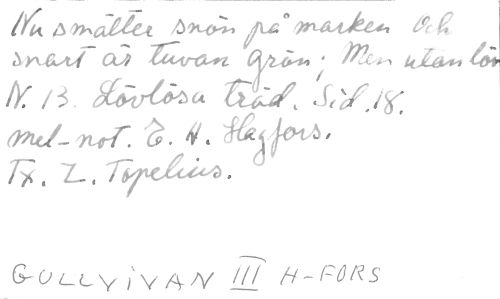 Nu smälter snön på marken och
snart är tuvan grön; Men utan löv
N. 13. Lövlösa träd. Sid. 18.
mel-not. E. H. Hagfors.
Tx. Z. Topelius.
GULLVIVAN III H-FORS